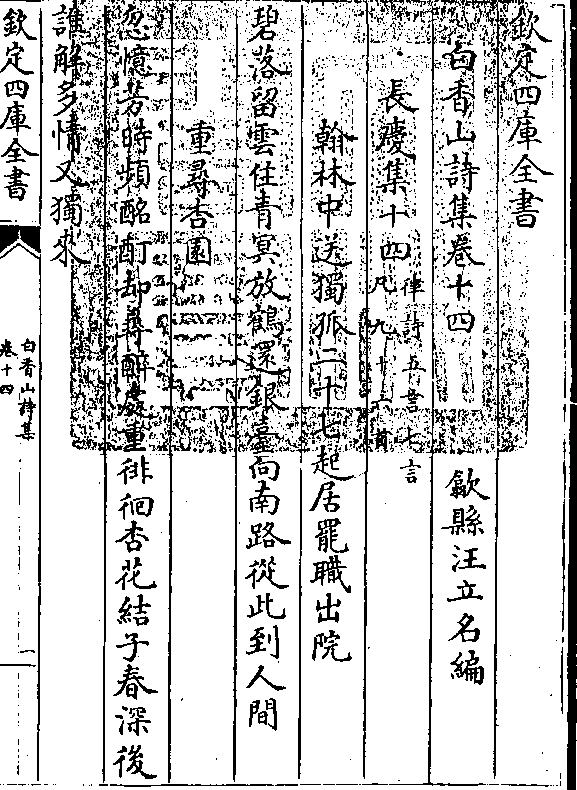 欽定四庫全書
白香山詩集卷十四
歙縣汪立名編
長慶集十四
律詩五言七言
凡九十六首
翰林中送獨孤二十七起居罷職出院
碧落留雲住青冥放鶴還銀臺向南路從此到人間
重尋杏園
忽憶芳時頻酩酊却尋醉處重徘徊杏花結子春深後
誰解多情又獨來
欽定四庫全書
白香山詩集
卷十四
一